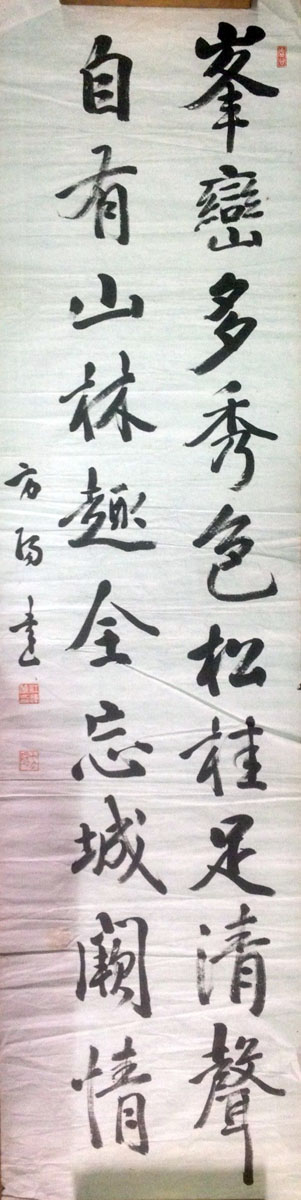 峯巒多秀色松桂足清聲
自有山林趣全忘城闕情
方